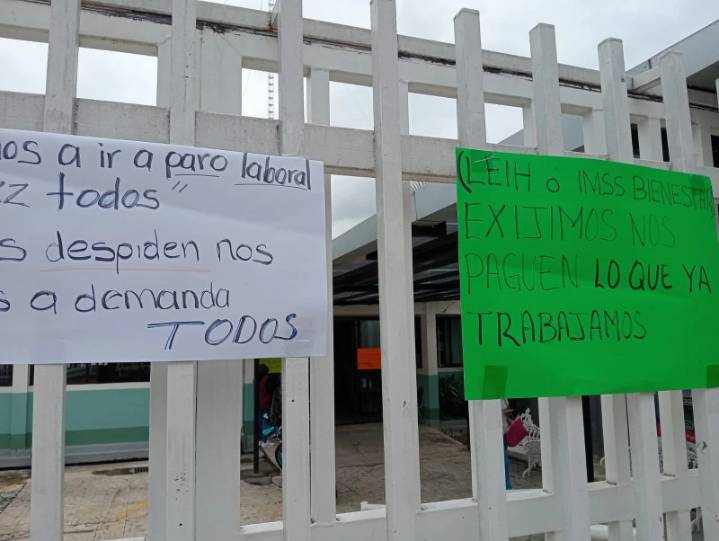 a ir a paro laboral
todos"
despiden nos
a demanda
TODOS
(LEIH ó IMSS BIENESTAR)
EXIJIMOS NOS
PAGUEN LO QUE YA
TRABAJAMOS